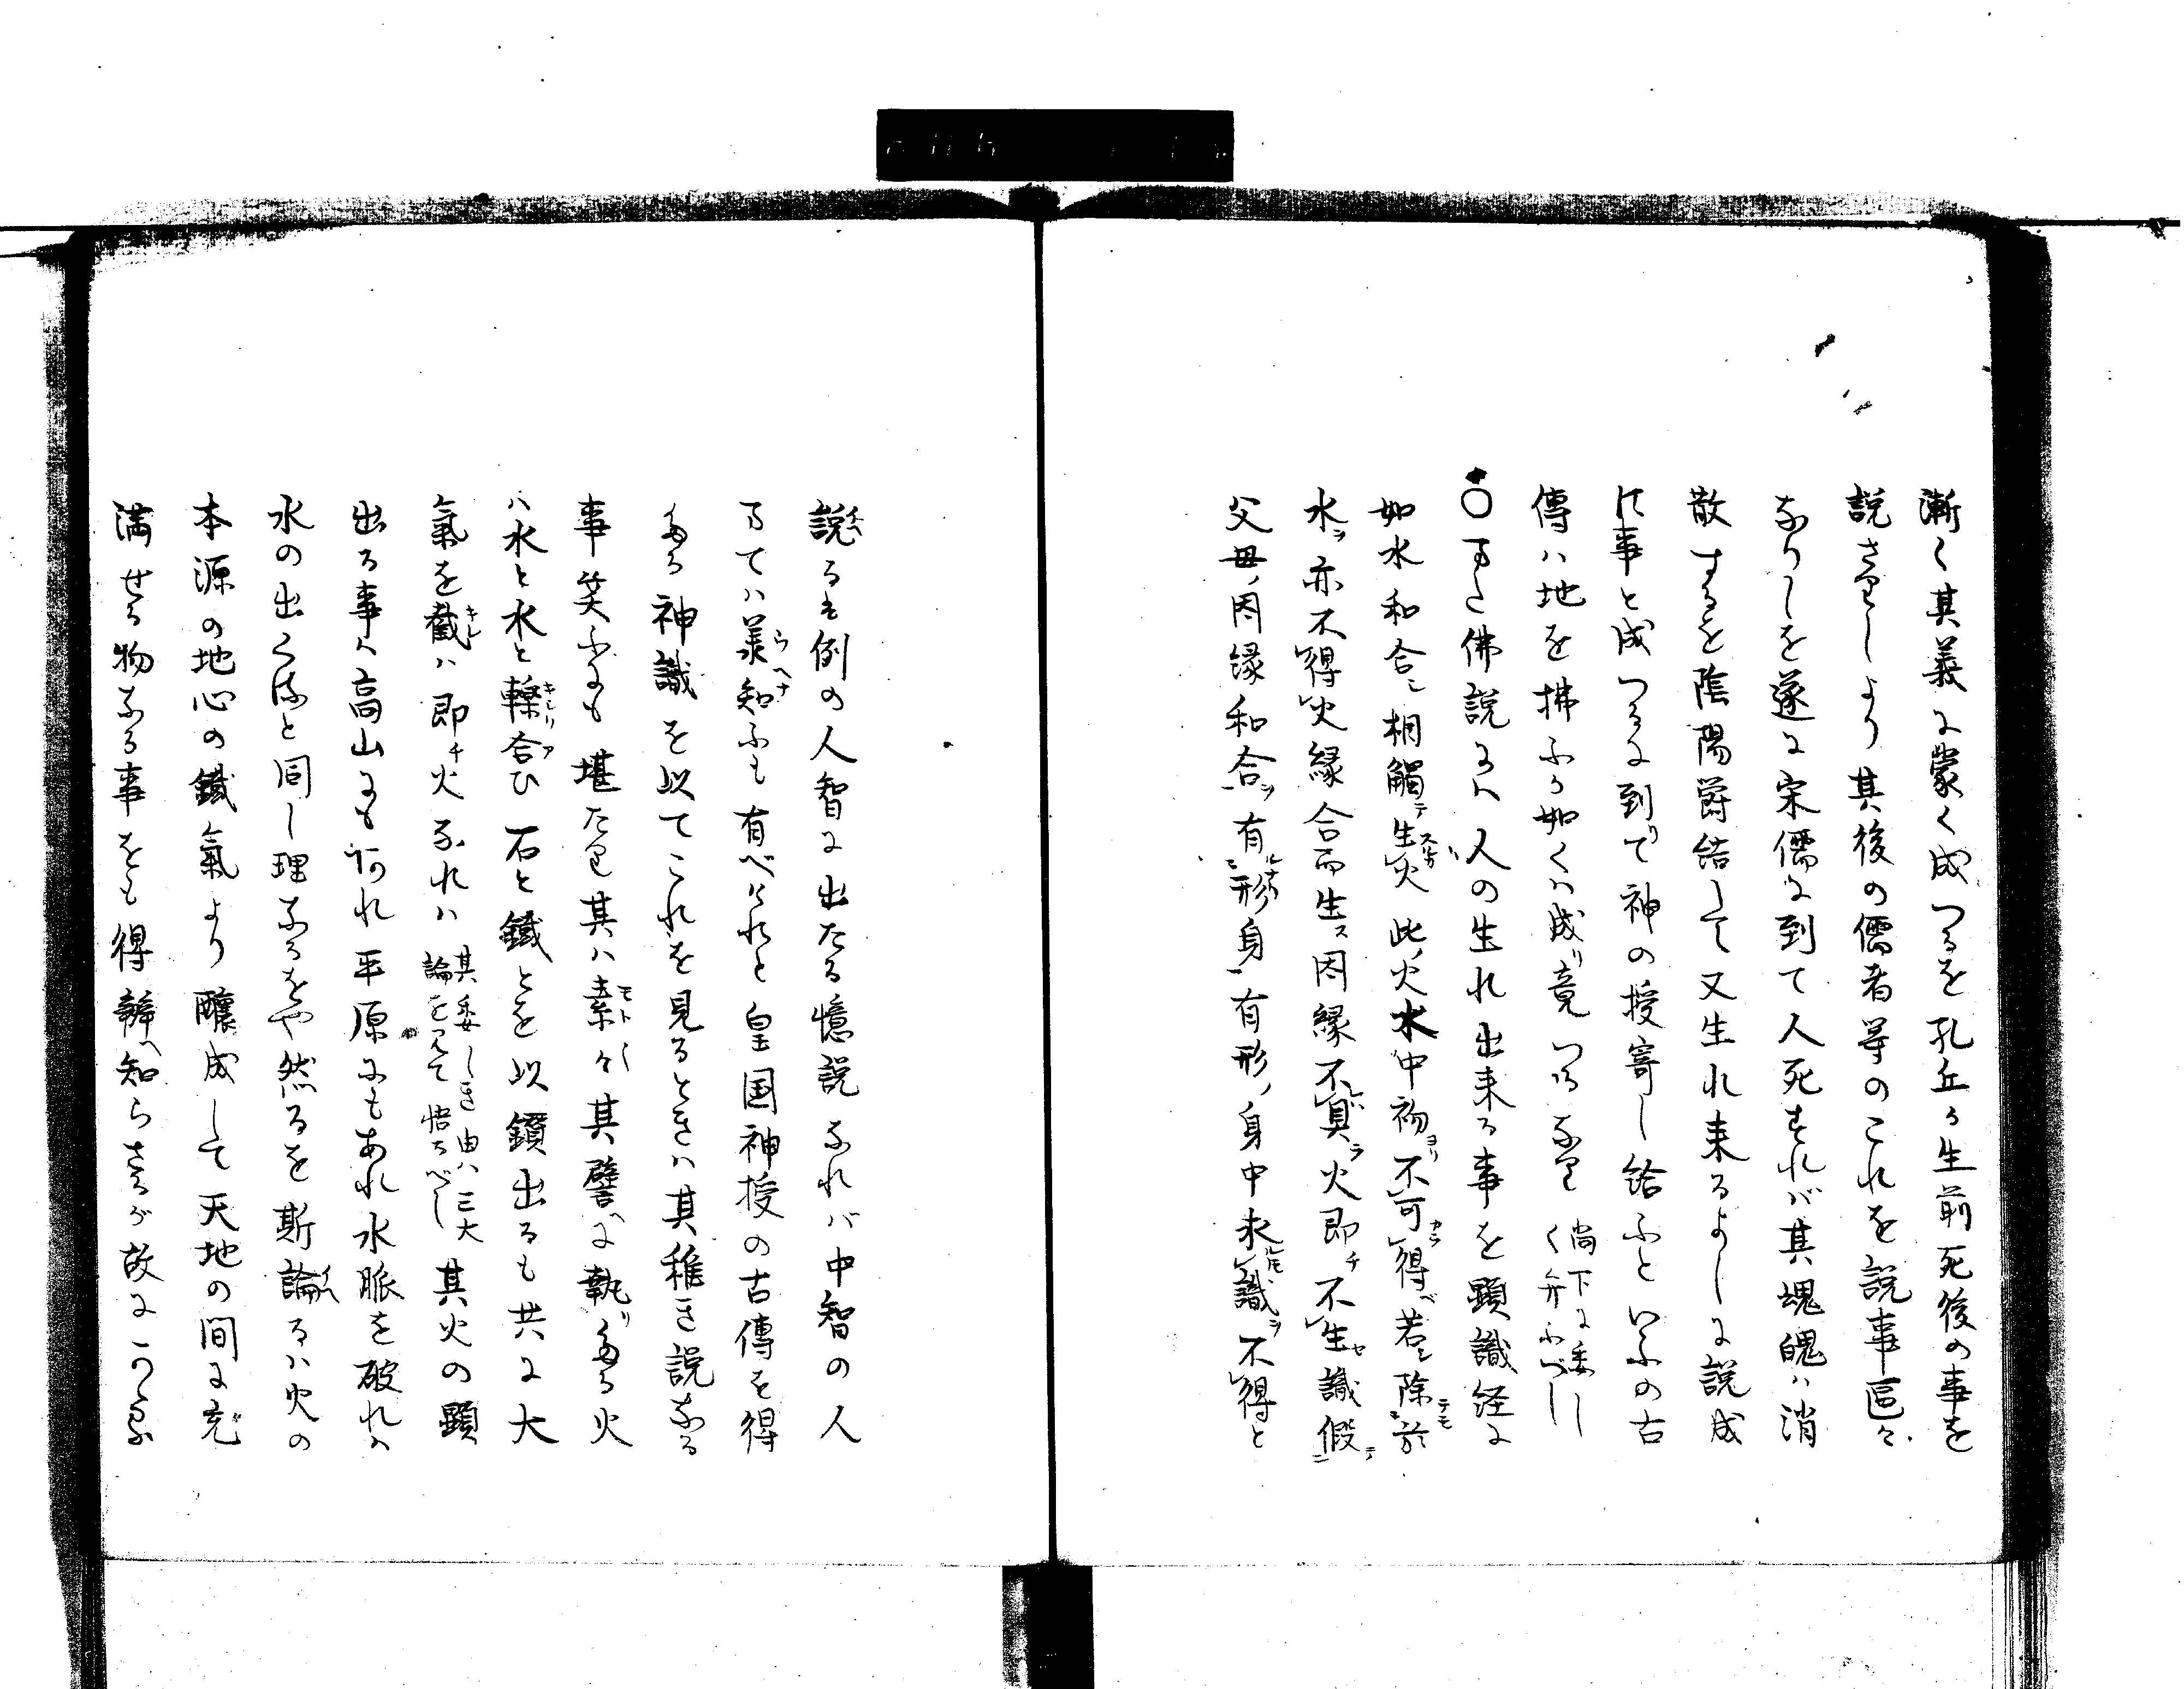 漸く其義に蒙く成つるを孔丘か生前死後の事を
説さりしより其後の儒者等のこれを説事區々
なりしを遂に宋儒に到て人死すれば其魂魄ハ消
散するを陰陽欝結して又生れ来るよしに説成
事と成つるに到りて神の授寄し給ふといふの古
傳ハ地を拂ふか如くハ成リ竟つるなり 尚下に委し
く弁ふべし
○また佛説にハ人の生れ出来る事を顕識経に
如水和合シ相觸テ生火 此ノ火水中初ヨリ不可得若シ除於
水ヲ亦不得火縁合而生ス因縁不具ラ火即チ不生セ識假
父母ノ因縁和合ヲ有形身有形ノ身中求識ヲ不得と
説るは例の人智に出たる憶説なれバ中智の人
まてハ羨知ふも有べけれと皇国神授の古傳を得
たる神識を以てこれを見るときハ其稚き説なる
事笑ふにも堪たり其ハ素々其譬に執りたる火
ハ水と水と轢合ひ石と鐵とを以鑽出るも共に大
氣を截ハ即チ火なれハ 其委しき由ハ三大
論を見て悟るべし 其火の顕
出る事ハ高山にも何れ平原にもあれ水脈を破れハ
水の出くると同し理なるをや然るを斯論るハ火の
本源の地心の鐵氣より釀成して天地の間に充
満せる物なる事をも得辨知らさるが故に